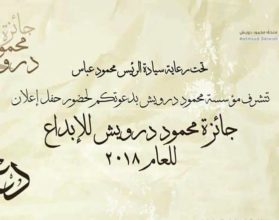 جائزة
محمود
درويش
مؤسسة محمود درويش
Mahmoud Darwish
تحت رعاية سيادة الرئيس محمود عباس
تتشرف مؤسسة محمود درويش بدعوتكم لحضور حفل إعلان
جائزة محمود درويش للإبداع
للعام ٢٠١٨